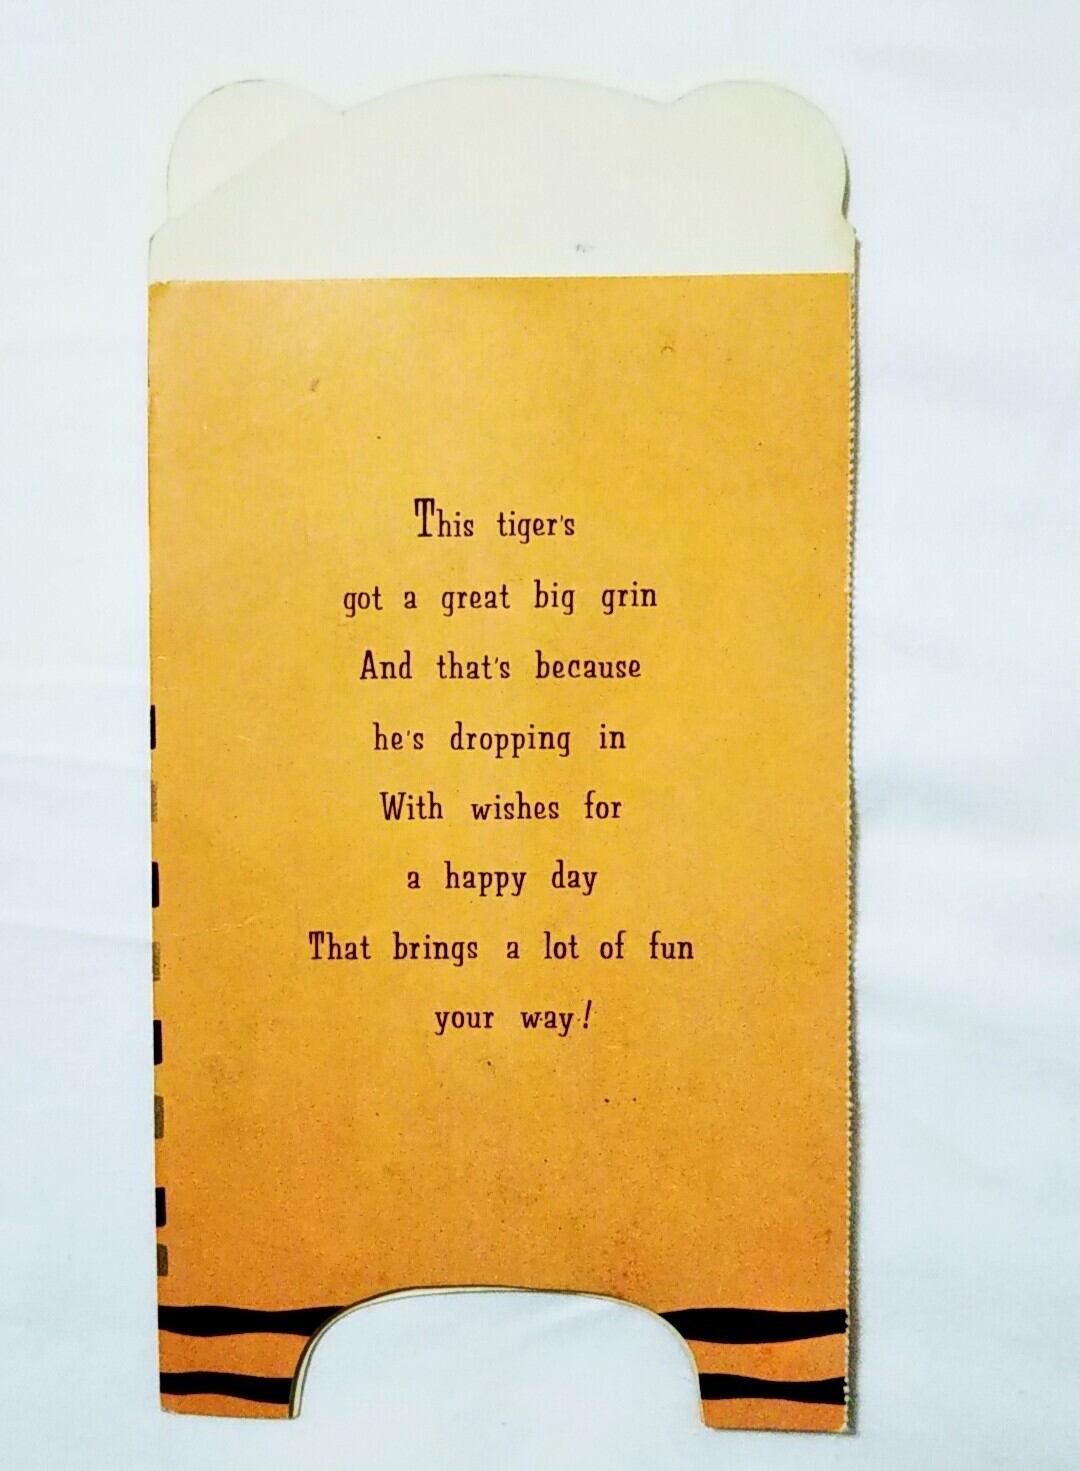 This tiger's
got a great big grin
And that's because
he's dropping in
With wishes for
a happy day
That brings a lot of fun
your way!